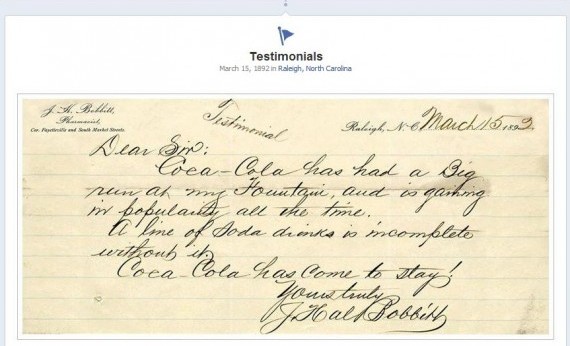 Testimonials
March 15, 1892 in Raleigh, North Carolina
J. H. Bobbitt,
Pharmacist,
Cor. Fayetteville and South Market Streets.
Testimonial
Raleigh, N. C. March 15, 1892.
Dear Sir:
Coca-Cola has had a Big
run at my Fountain, and is gaining
in popularity all the time.
A line of Soda drinks is incomplete
without it.
Coca-Cola has come to stay!
Yours truly
J Hal Bobbitt